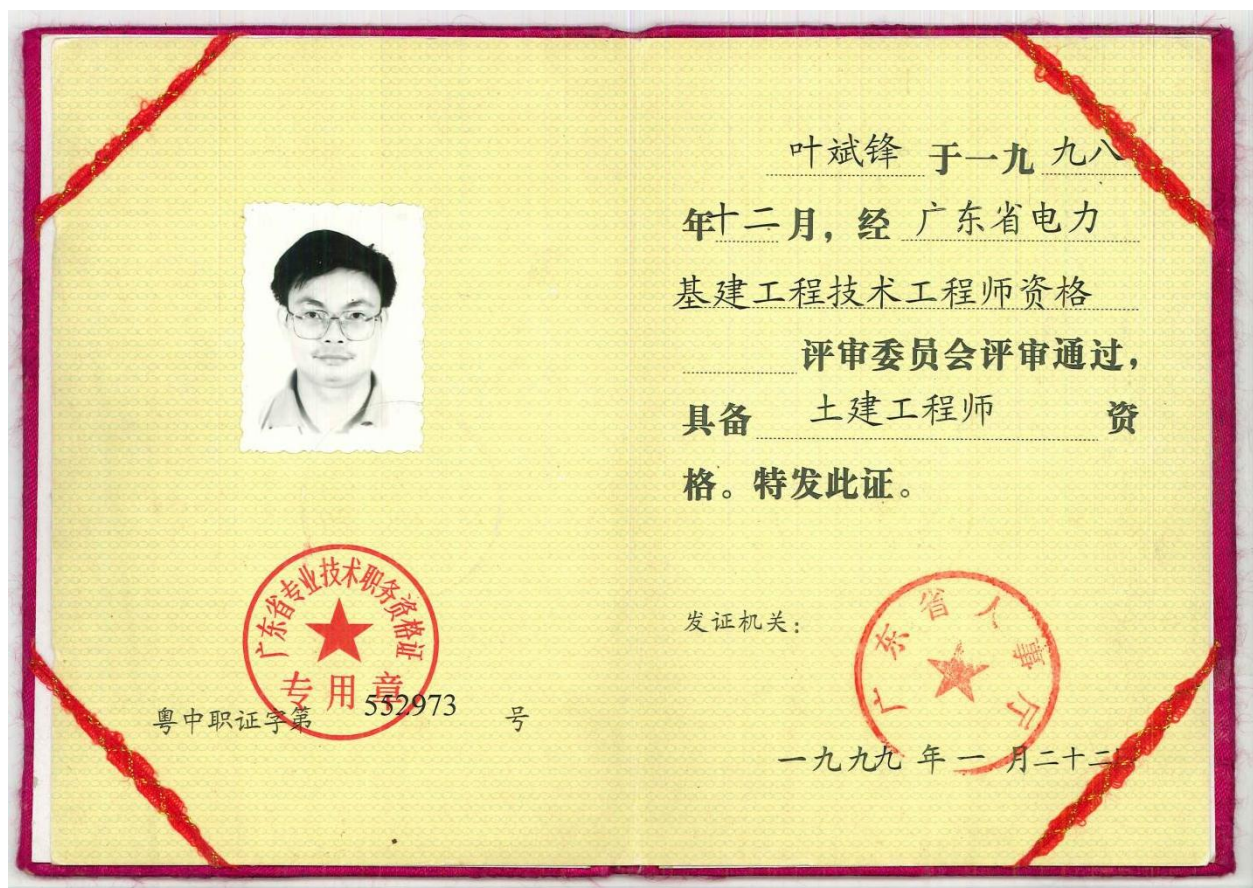 广东省专业技术职务资格证
专用章
粤中职证字第 552973 号
叶斌锋 于一九 九八
年十二月，经 广东省电力
基建工程技术工程师资格
评审委员会评审通过，
具备 土建工程师 资
格。特发此证。
发证机关：
广东省人事厅
一九九九 年 一 月二十二日